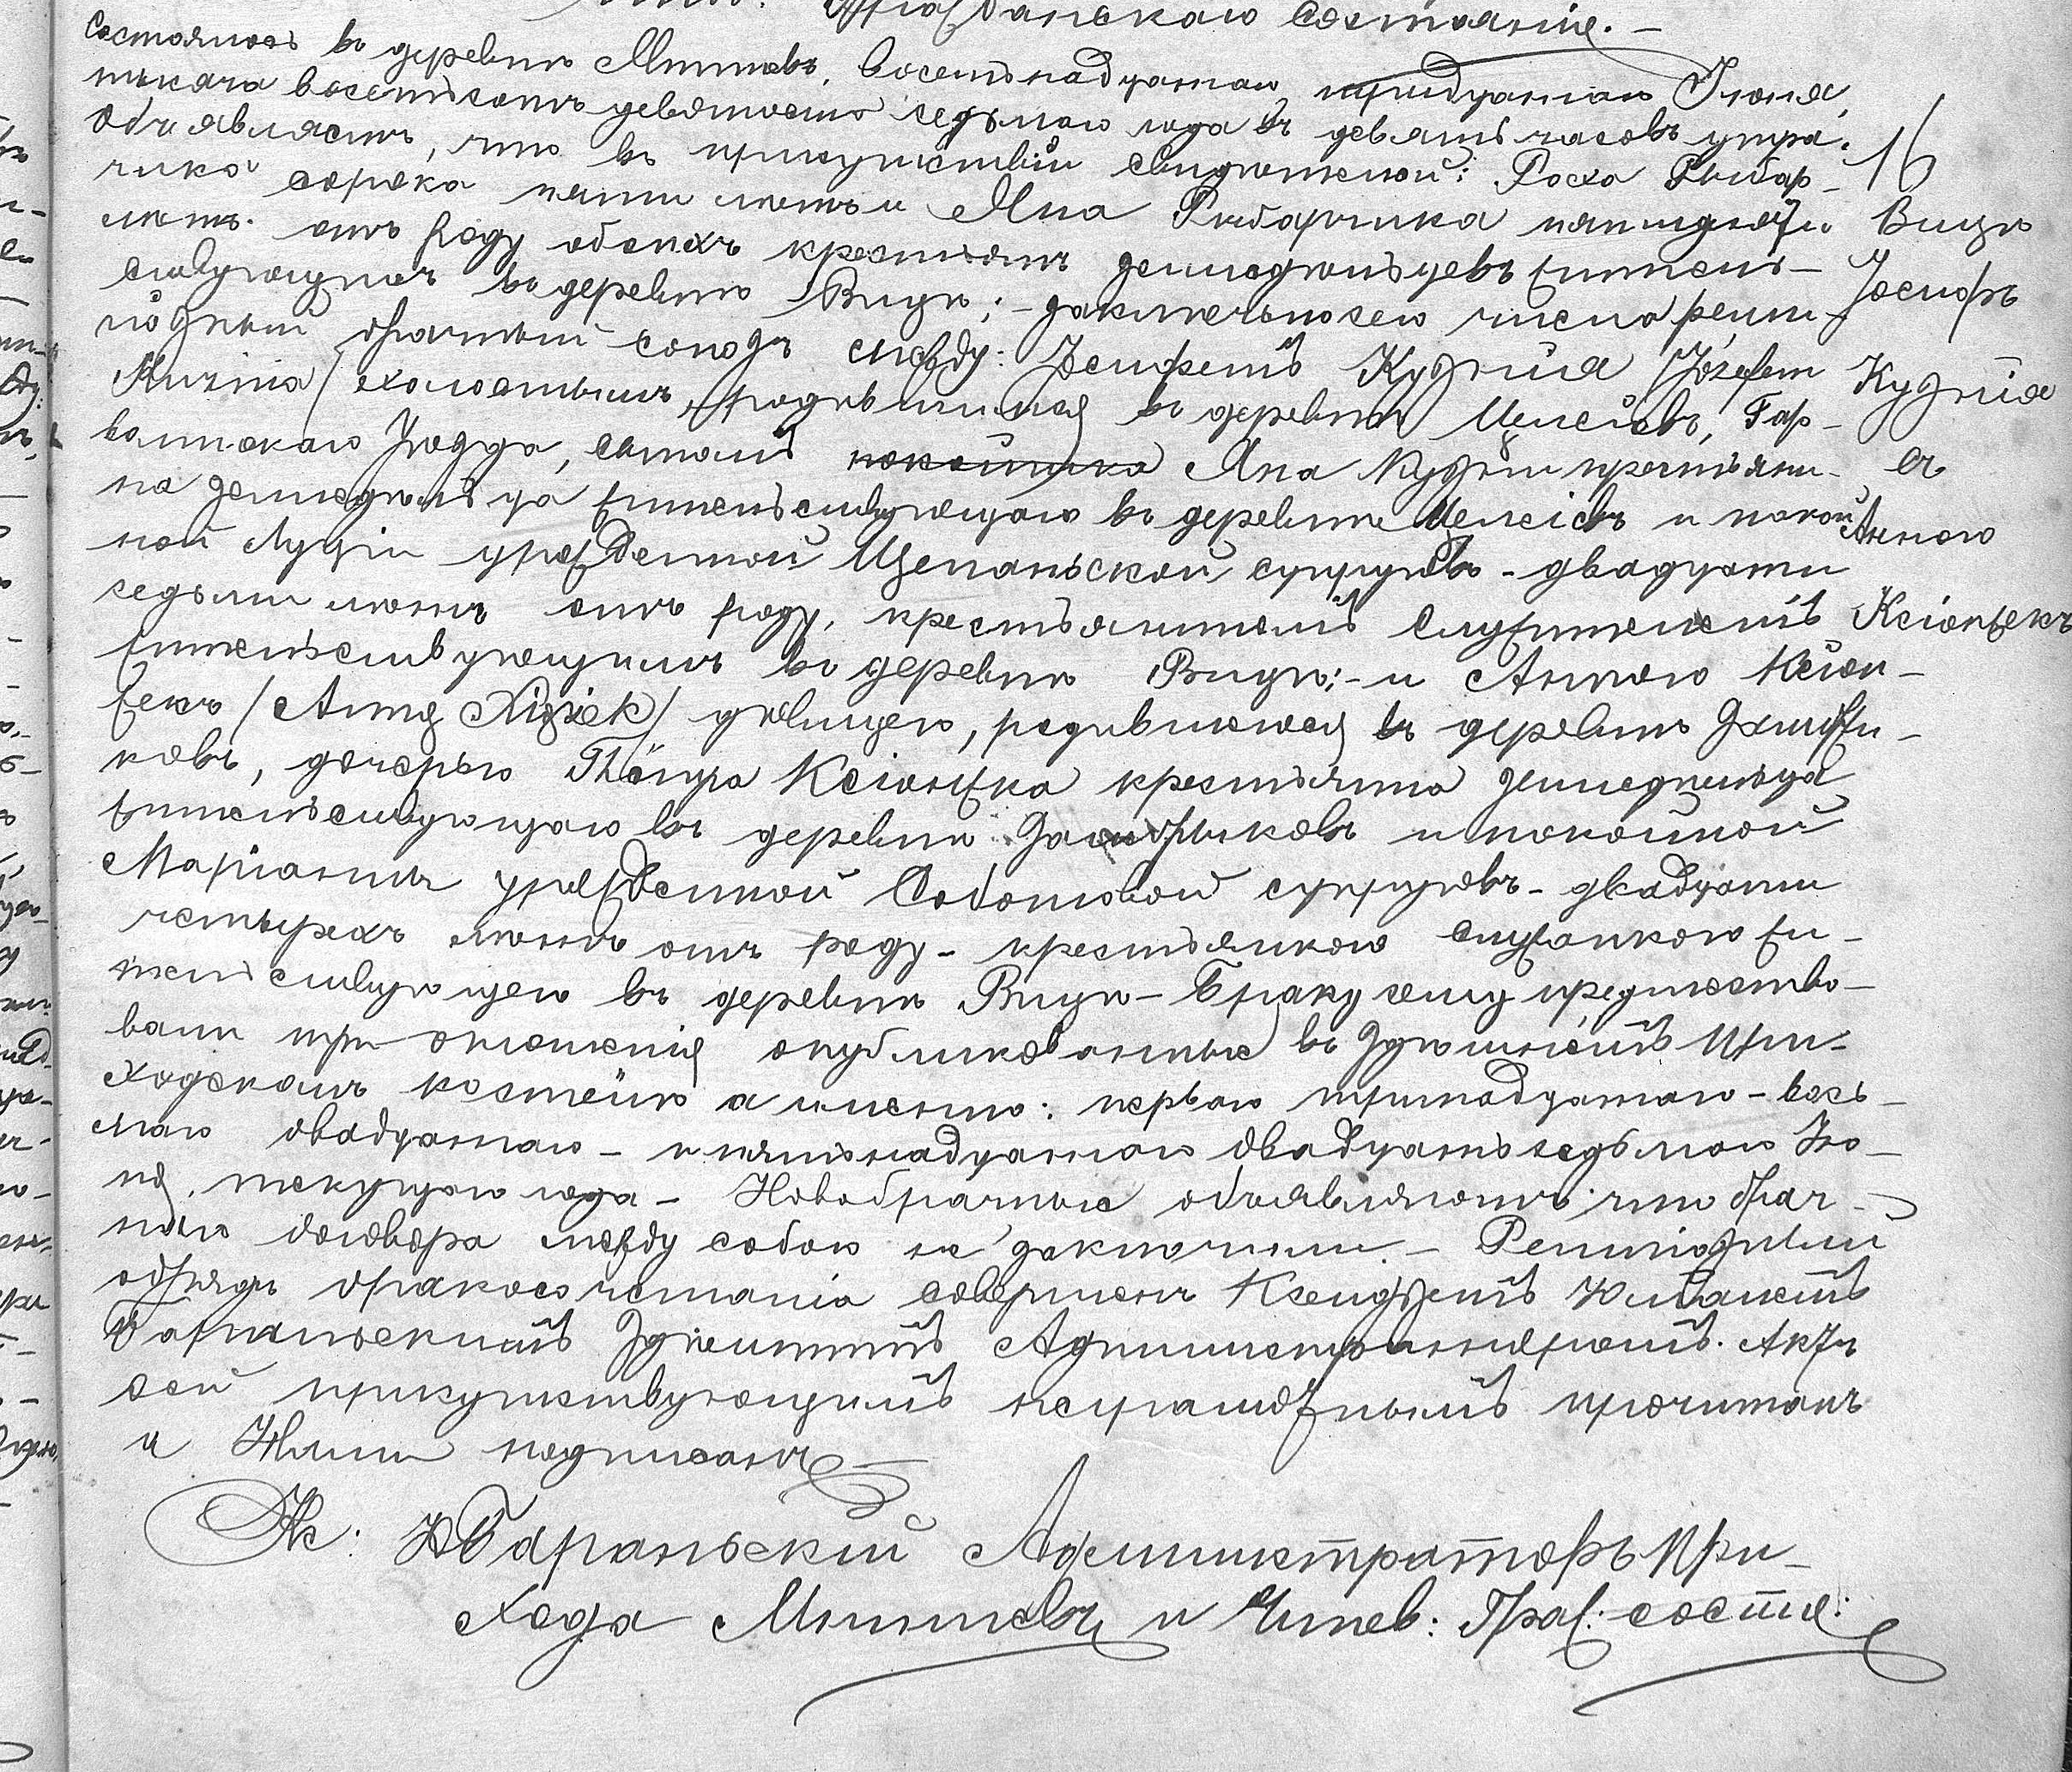 Гражданскаго состоянія. —
Состоялось въ деревнѣ Мнишевъ, восемнадцатаго тридцатаго Іюня,
тысяча восемьсотъ девяносто седьмого года въ девять часовъ утра.
Объявляемъ, что въ присутствіи свидѣтелей: Роха Рыбар-
чика сорока пяти лѣтъ и Яна Рыбарчика пятидесяти
лѣтъ отъ роду обоихъ крестьянъ земледѣльцевъ житель-
ствующихъ въ деревнѣ Вицѣ; — заключенъ сего числа рели-
гіозный брачный союзъ между: Іосифомъ Кузьнія /Józefem
Kuźnia/ холостымъ, родившимся въ деревнѣ Гар-
волинскаго Уѣзда, сыномъ покойника Яна Кузьни крестьяни-
на земледѣльца жительствующаго въ деревнѣ и покой-
ной Луціи урожденной Щепаньской супруговъ — двадцати
седьми лѣтъ отъ роду, крестьяниномъ служителемъ
жительствующимъ въ деревнѣ Вицѣ; — и Анною Ксіон-
жекъ /Anną Xiążek/ дѣвицею, родившеюся въ деревнѣ
ковъ, дочерью Піотра Ксіонжка крестьянина земледѣльца
жительствующаго въ деревнѣ и покойной
Маріанны урожденной Соботовой супруговъ — двадцати
четырехъ лѣтъ отъ роду — крестьянкою служанкою жи-
тельствующею въ деревнѣ Вицѣ — Браку сему предшество-
вали три оглашенія опубликованные въ здѣшнемъ При-
ходскомъ костёлѣ а именно: перваго тринадцатаго — вось-
маго двадцатаго — и пятнадцатаго двадцать седьмого Ію-
ня, текущаго года — Новобрачные объявляютъ что брач-
наго договора между собою не заключили — Религіозный
обрядъ бракосочетанія совершенъ Ксендзомъ
Бараньскимъ Здѣшнимъ Администраторомъ. Актъ
сей присутствующимъ неграмотнымъ прочитанъ
и Нами подписанъ —
Кс: Бараньскій Администраторъ При-
хода Мнишевъ и Чинов: Граж: состоя:
16
Вицѣ
Іосифъ
Кузьнія
съ
Анною
Ксіонжекъ